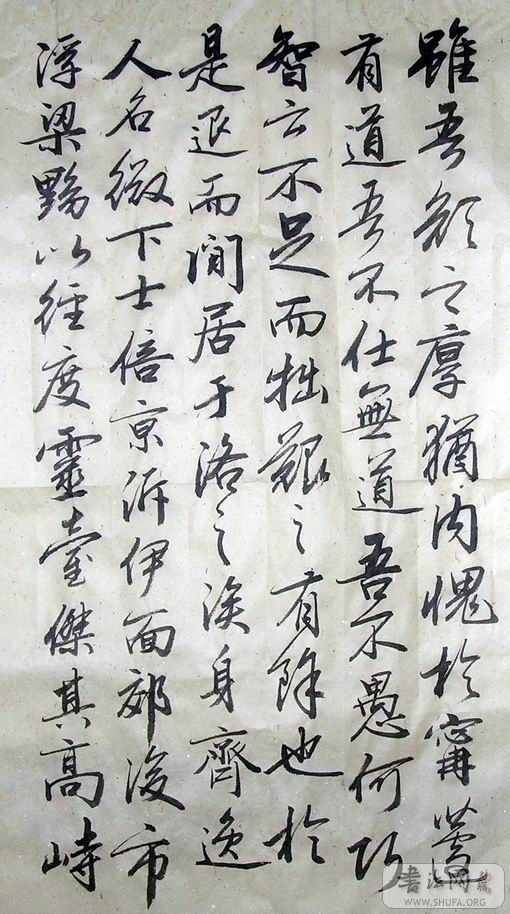 雖吾顏之厚猶內愧於甯蘧
有道吾不仕無道吾不愚何巧
智云不足而拙艱之有餘也於
是退而閒居于洛之涘身齊逸
人名微下士倍京泝伊面郊後市
浮梁黝以徑度靈臺傑其高峙
书法网
WWW.SHUFA.ORG